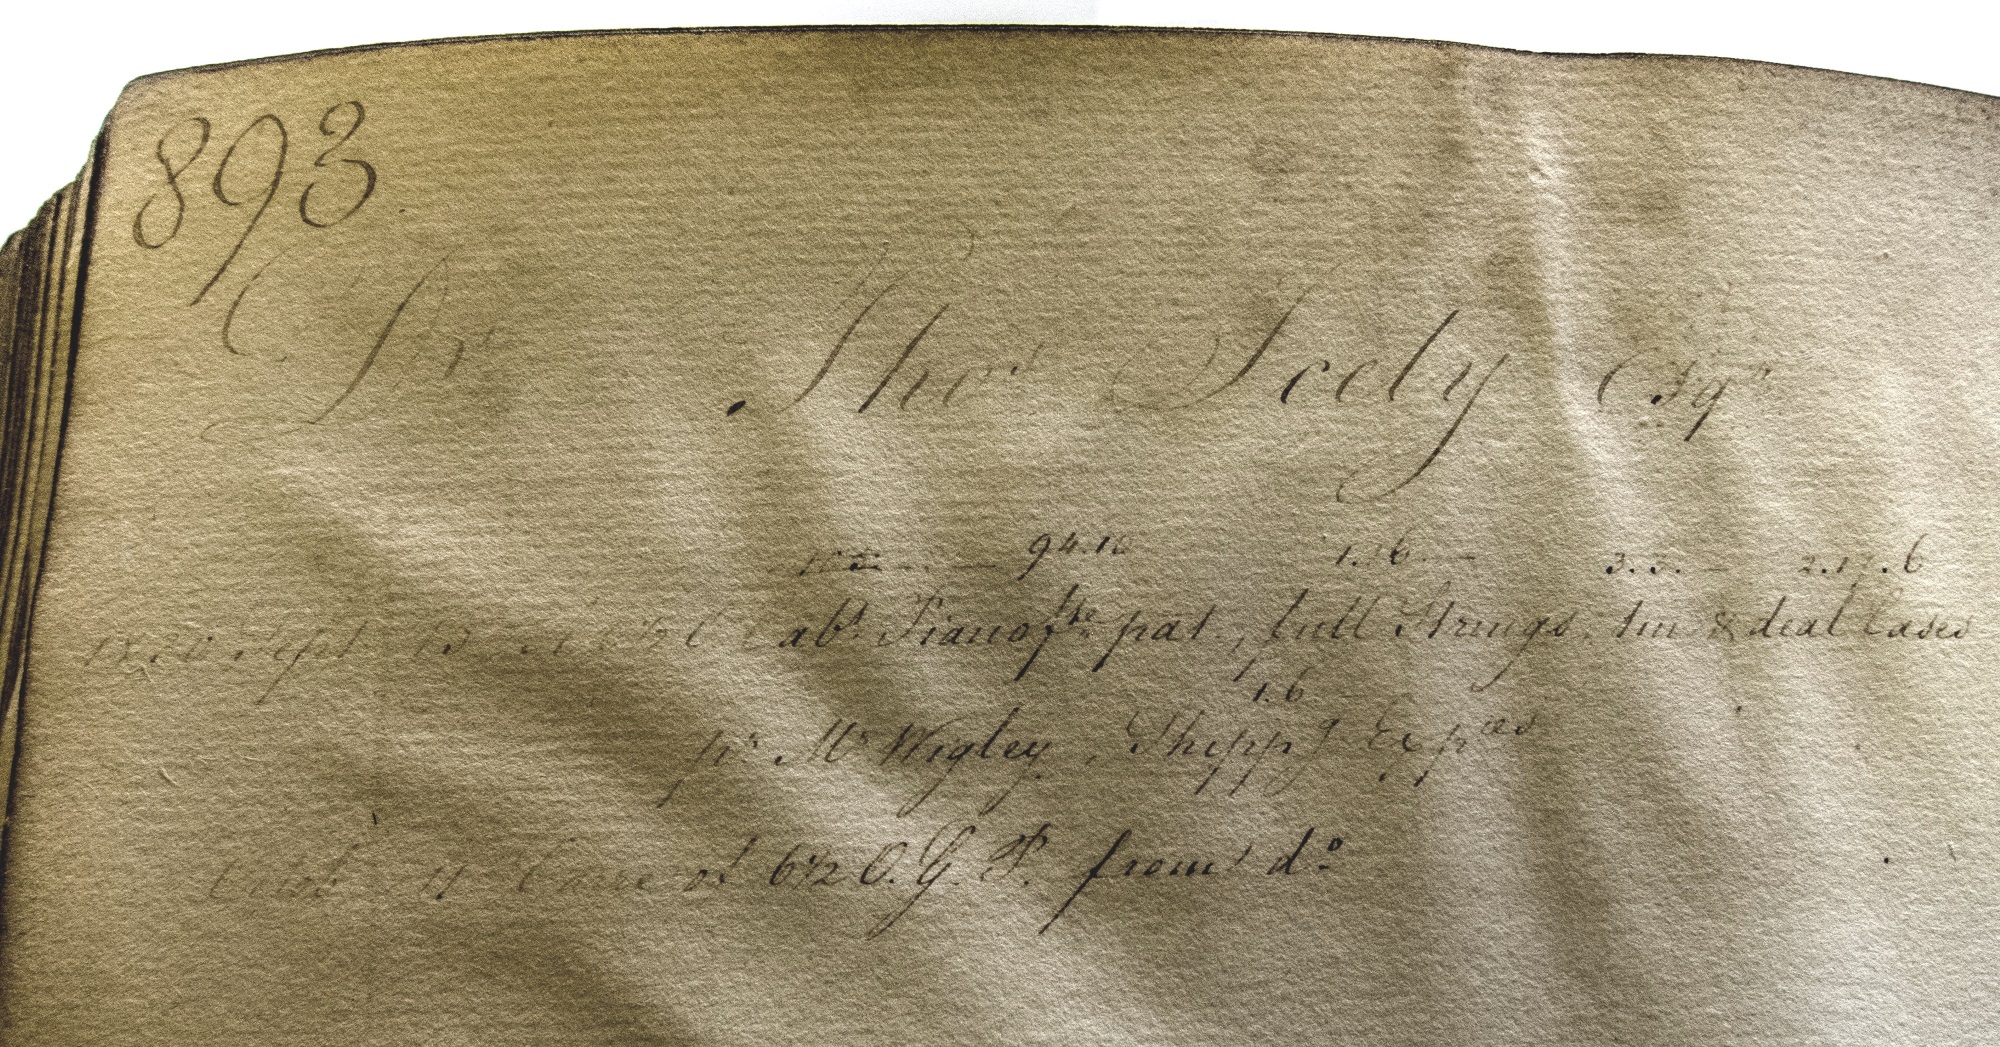 893
Dr Thos Seely Esqr
94.10 1.16.— 3.3.— 2.17.6
1820 Sept 13 Cabt Pianofte pat, full Strings, tin & deal Cases
1.6
pr Mr Wigley, Shippg Expces
Case of 612 O.G.P. from do